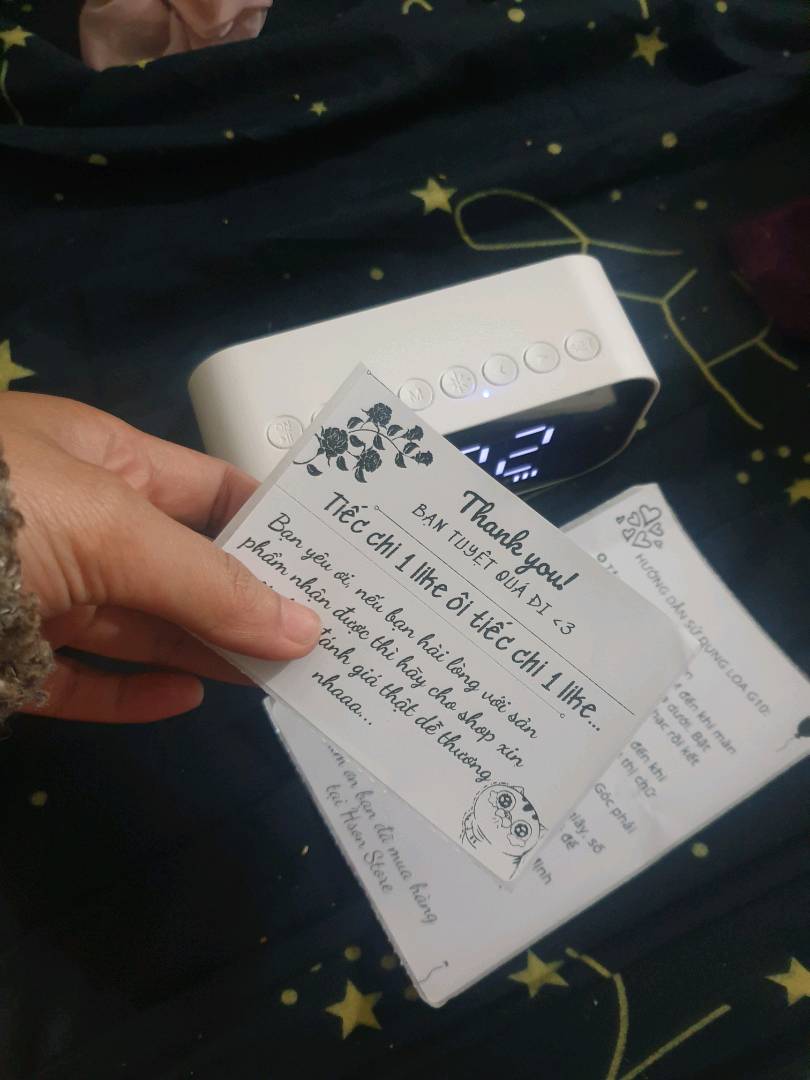 Thank you!
BẠN TUYỆT QUÁ ĐI <3
Tiếc chi 1 like ôi tiếc chi 1 like...
Bạn yêu ơi, nếu bạn hài lòng với sản
phẩm nhận được thì hãy cho shop xin
đánh giá thật dễ thương
nhaaa...
HƯỚNG DẪN SỬ DỤNG LOA G10:
đến khi màn
dưới. Bật
nhạc rồi kết
đến khi
thị chữ
Góc phải
này, số
để
định
ơn bạn đã mua hàng
tại Hson Store
M